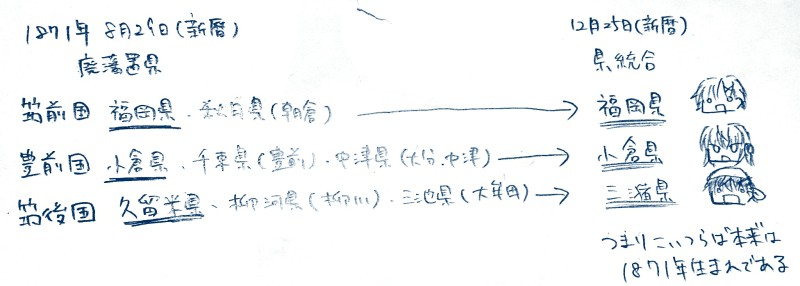 1871年 8月29日(新暦)
廃藩置県
筑前国 福岡県・秋月県(朝倉)
豊前国 小倉県・千束県(豊前)・中津県(大分、中津)
筑後国 久留米県、柳河県(柳川)・三池県(大牟田)
12月25日(新暦)
県統合
福岡県
小倉県
三潴県
つまりこいつらは本来は
1871年生まれである